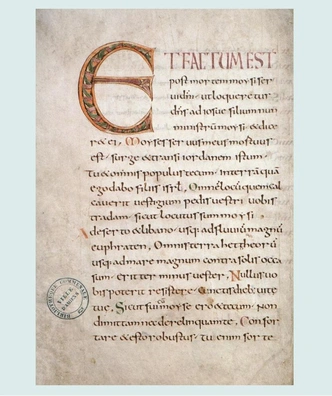 ET FACTUM EST
post mortem moysi ser
ut loqueretur
dns ad iosue filium nun
ministrum moysi & dice
r& ei, Moyses servus meus mortuus
est. surge & transi iordanem istum.
Tu & omnis populus tecum. in terram quã
ego dabo filiis isrl. Omnem locum quem cal
caverit vestigium pedis vestri vobis
tradam. sicut locutus sum moysi
A deserto & libano. usq; ad fluvium magnũ
euphraten. Omnis terra hettheorũ
usq; ad mare magnum contra solis occa
sum. erit terminus vester, Nullus vo
bis poterit resistere cunctis diebus vite
tue. Sicut fui cum moyse ero & tecum. Non
dimittam nec derelinquam te. Confor
tare & esto robustus. tu enim sorte